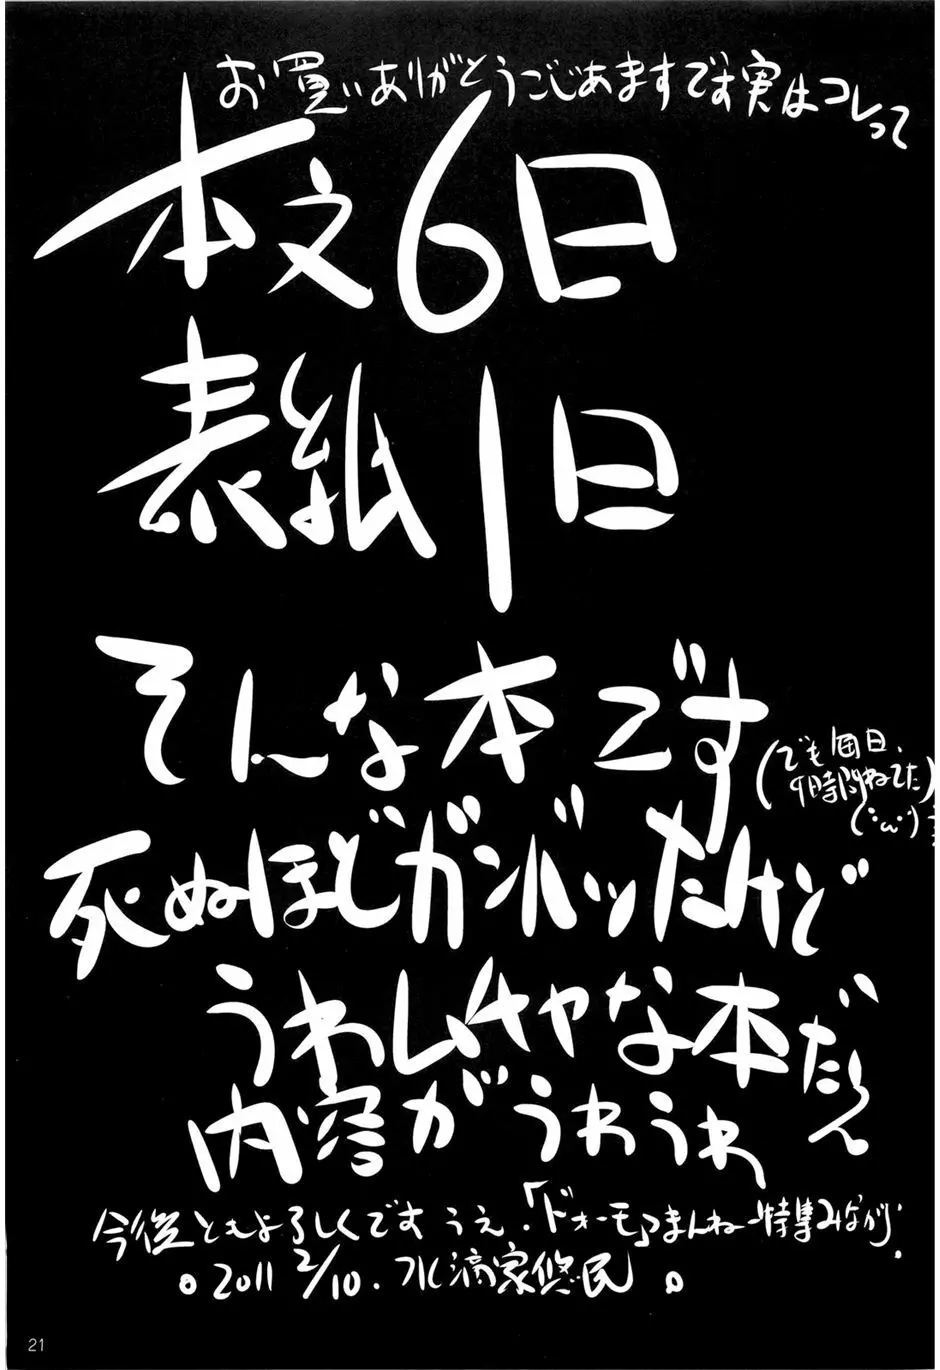 お買いありがとうごじあますです実はコレって
本文6日
表紙1日
そんな本です
(でも毎日、
9時間ねてた)
(・ω・)
死ぬほどガンバッたけど
うわムチャな本だ〜ん
内容がうわうわ
今後ともよろしくですうえ.「ドォーモ」まんねー特集みながら.
。2011 2/10. 水滴家悠民。
21